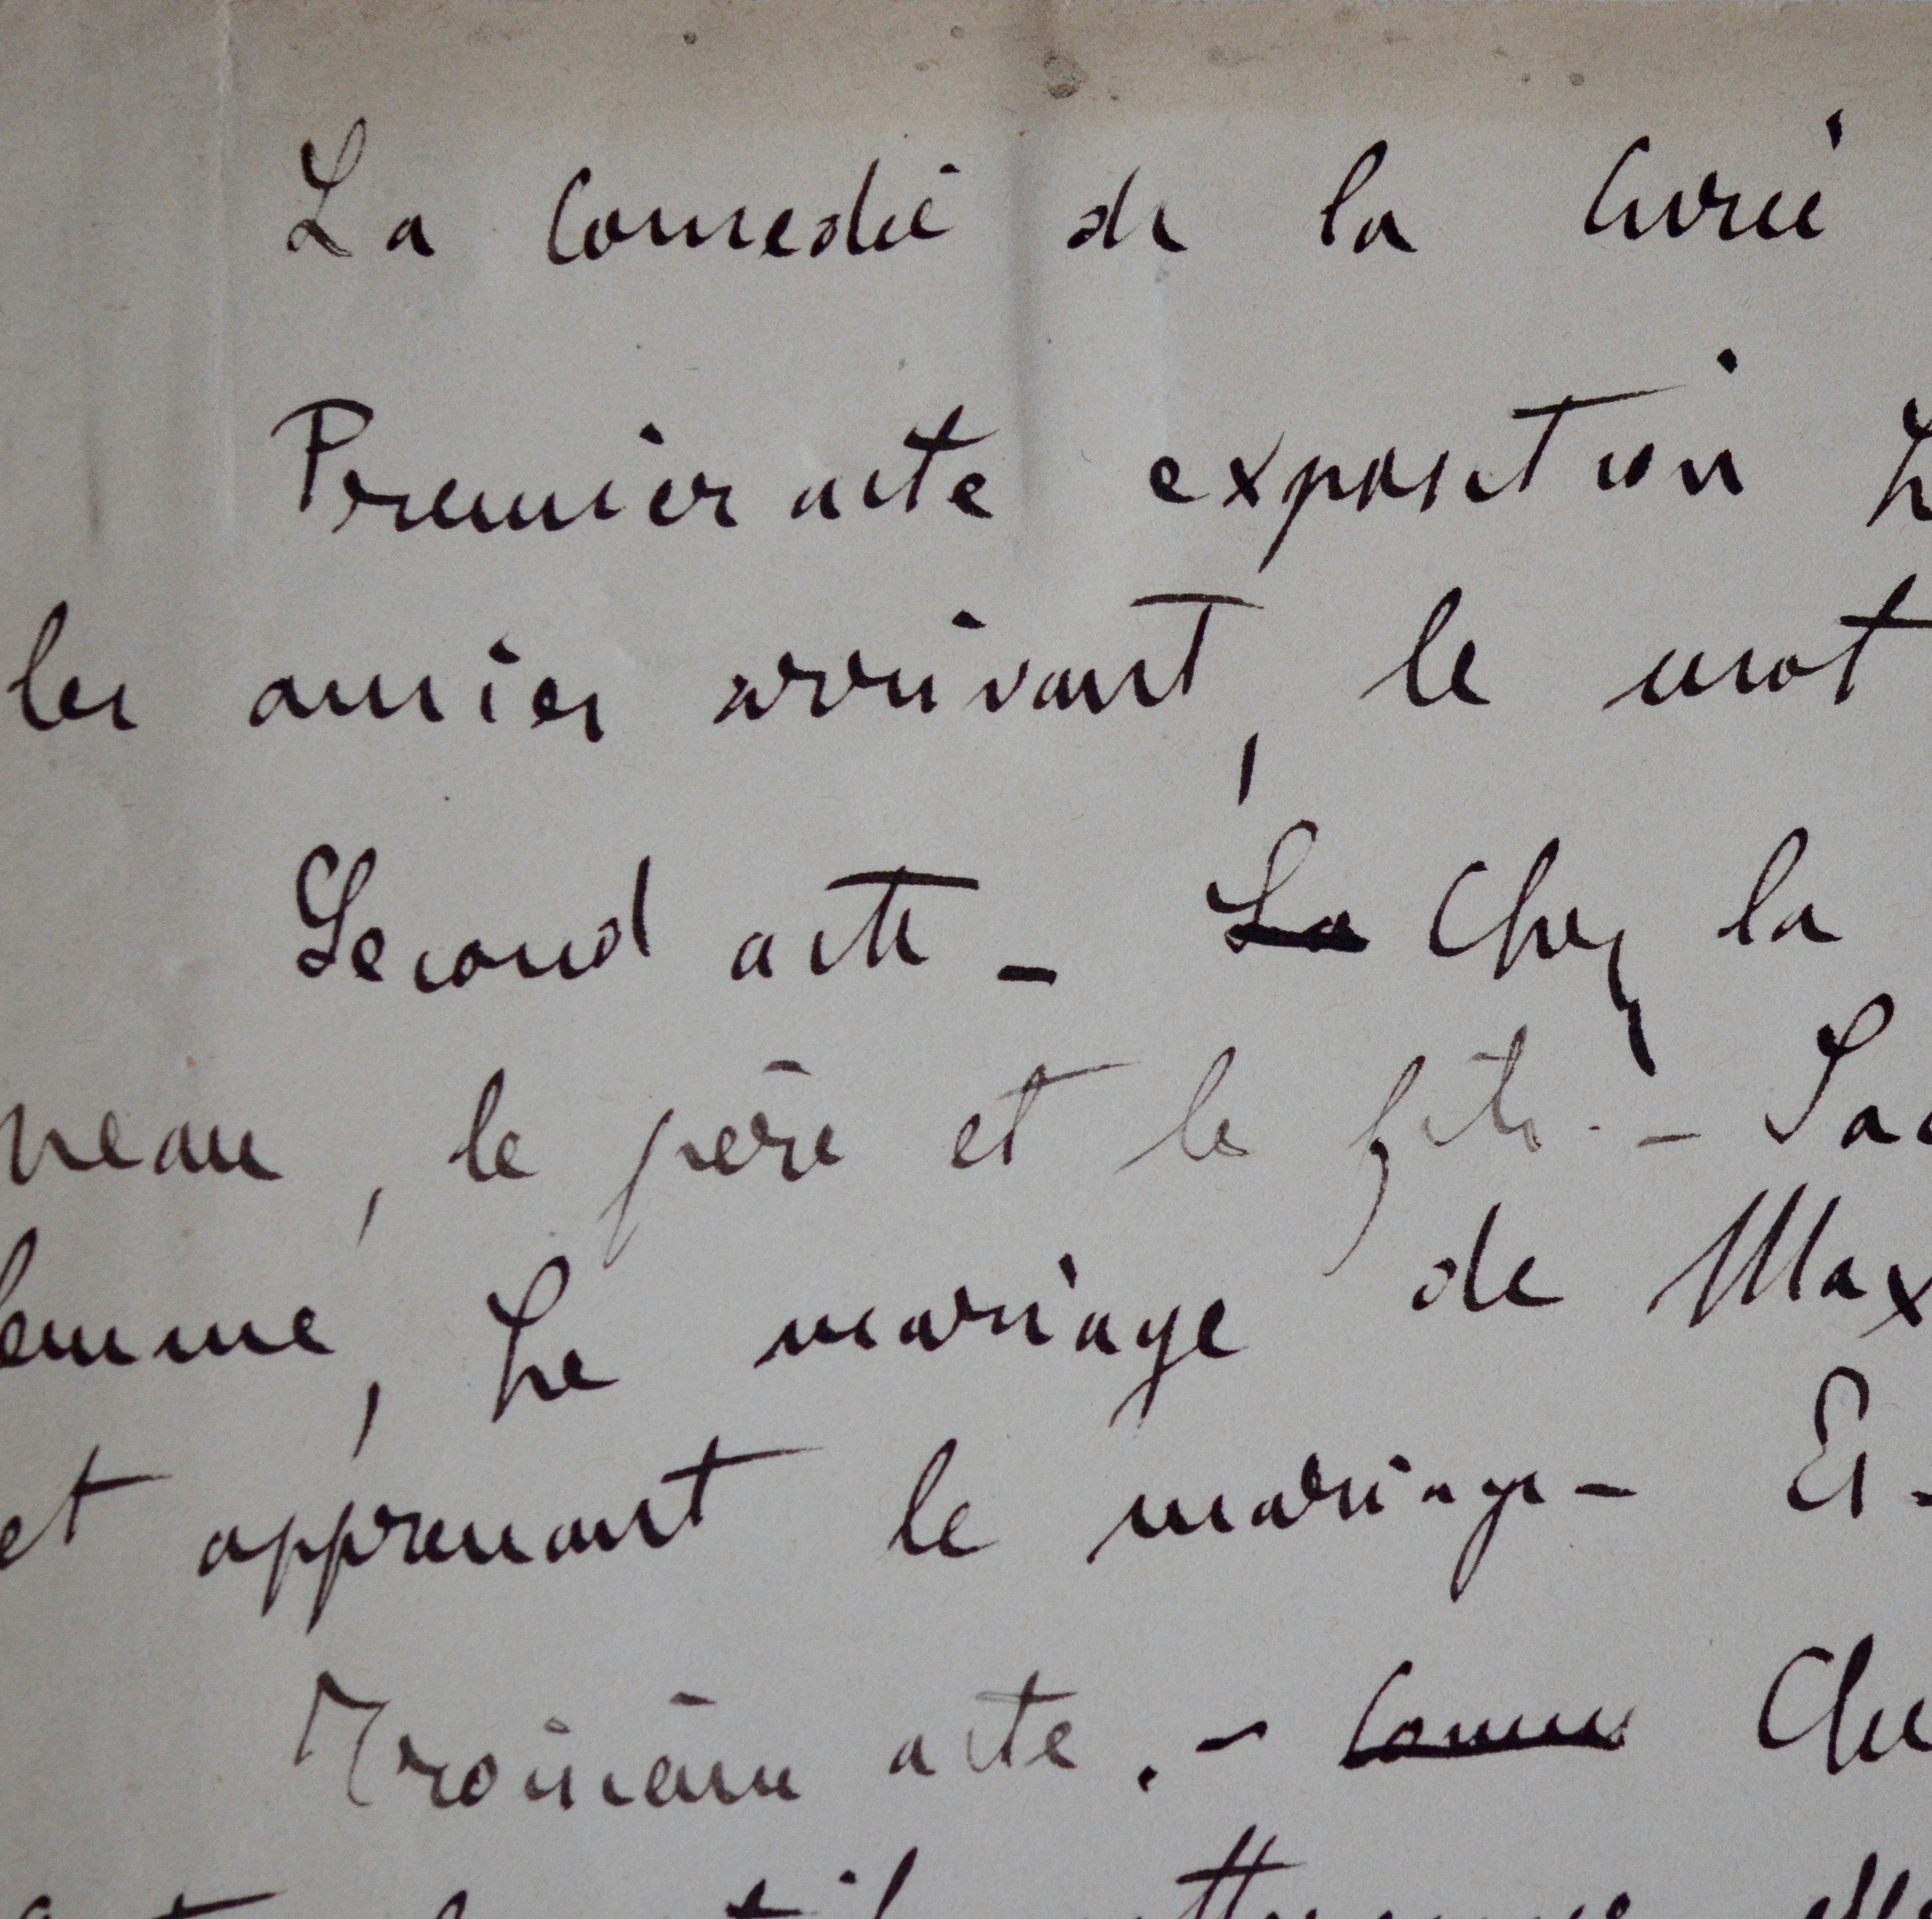 La Comedie de la Curée
Premier acte exposition
les amies arrivant, le mot
Second acte - La Chez la
neau, le père et le fils. - Sac
femme, Le mariage de Max
et apprenant le mariage -
Troisième acte. - Comme Che